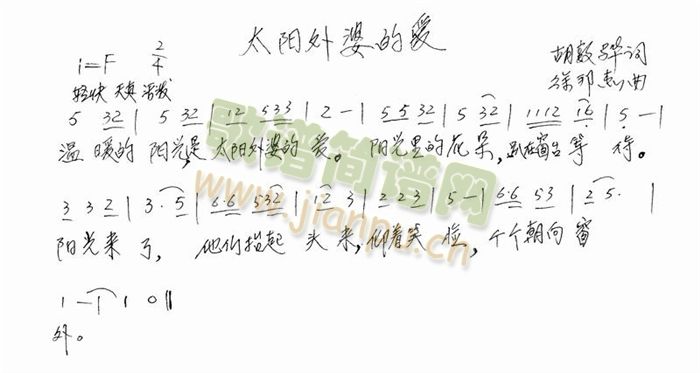 太阳外婆的爱
1=F 2/4
胡敦骅词
轻快 天真 活泼
徐邪惠曲
5 32 | 5 32 | 12 533 | 2 - | 55 32 | 5 32 | 1112 16 | 5 - |
温 暖的 阳光是 太阳外婆的 爱。 阳光里的花朵, 趴在窗台等 待。
3 3 2 | 3· 5 | 6·6 532 | 12 3 | 2 2 3 | 5 - | 6·6 53 | 2 5· |
阳光来 了, 他们抬起 头 来, 仰着笑 脸, 个个朝向 窗
1 - | 1 0 ‖
外。
歌谱简谱网
www.jianpu.cn